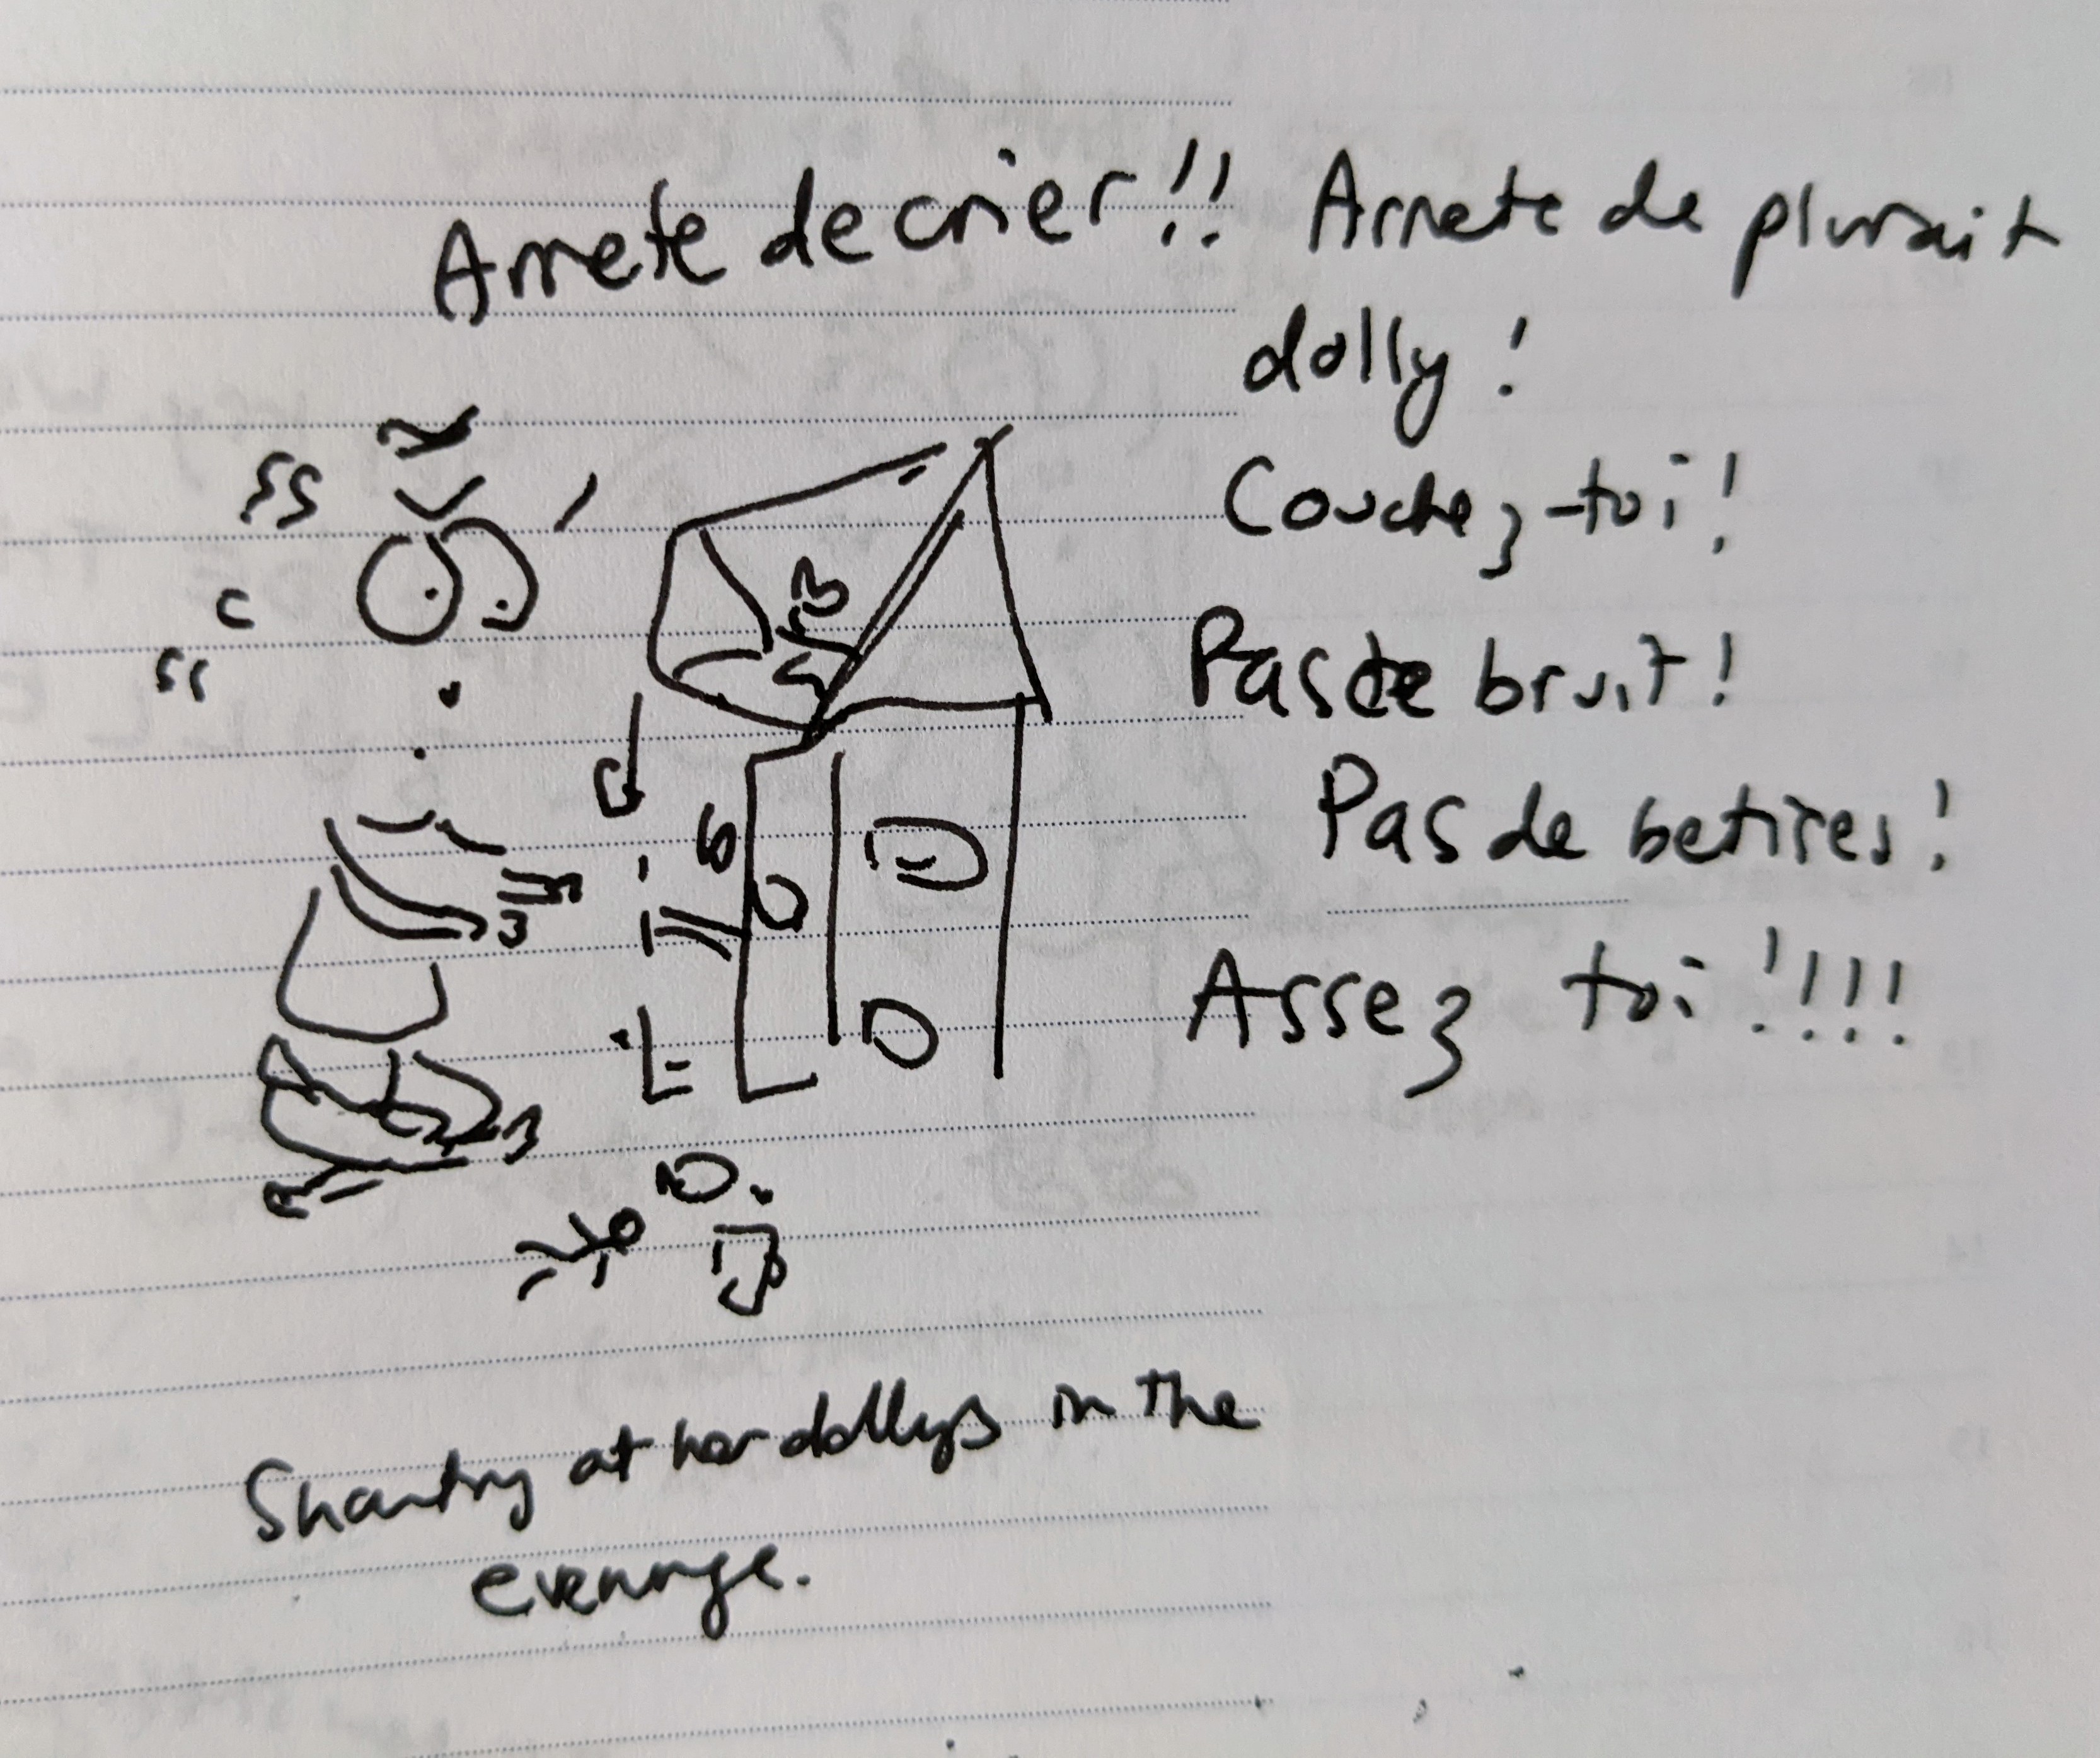 Arrete de crier!! Arrete de plurait
dolly!
Couchez-toi!
Pas de bruit!
Pas de betises!
Assez toi!!!!
Shouting at her dollys in the
evenings.